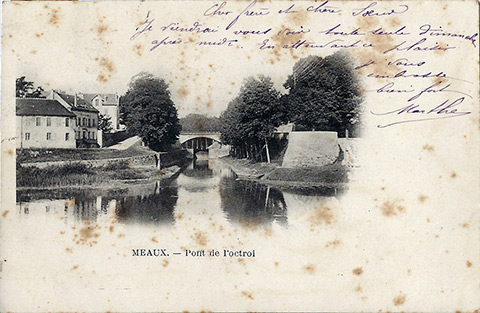 Cher frère et chère Soeur
Je viendrai vous voir toute seule dimanche
après-midi. En attendant ce plaisir
je vous
embrasse
bien fort
Marthe
MEAUX. — Pont de l'octroi